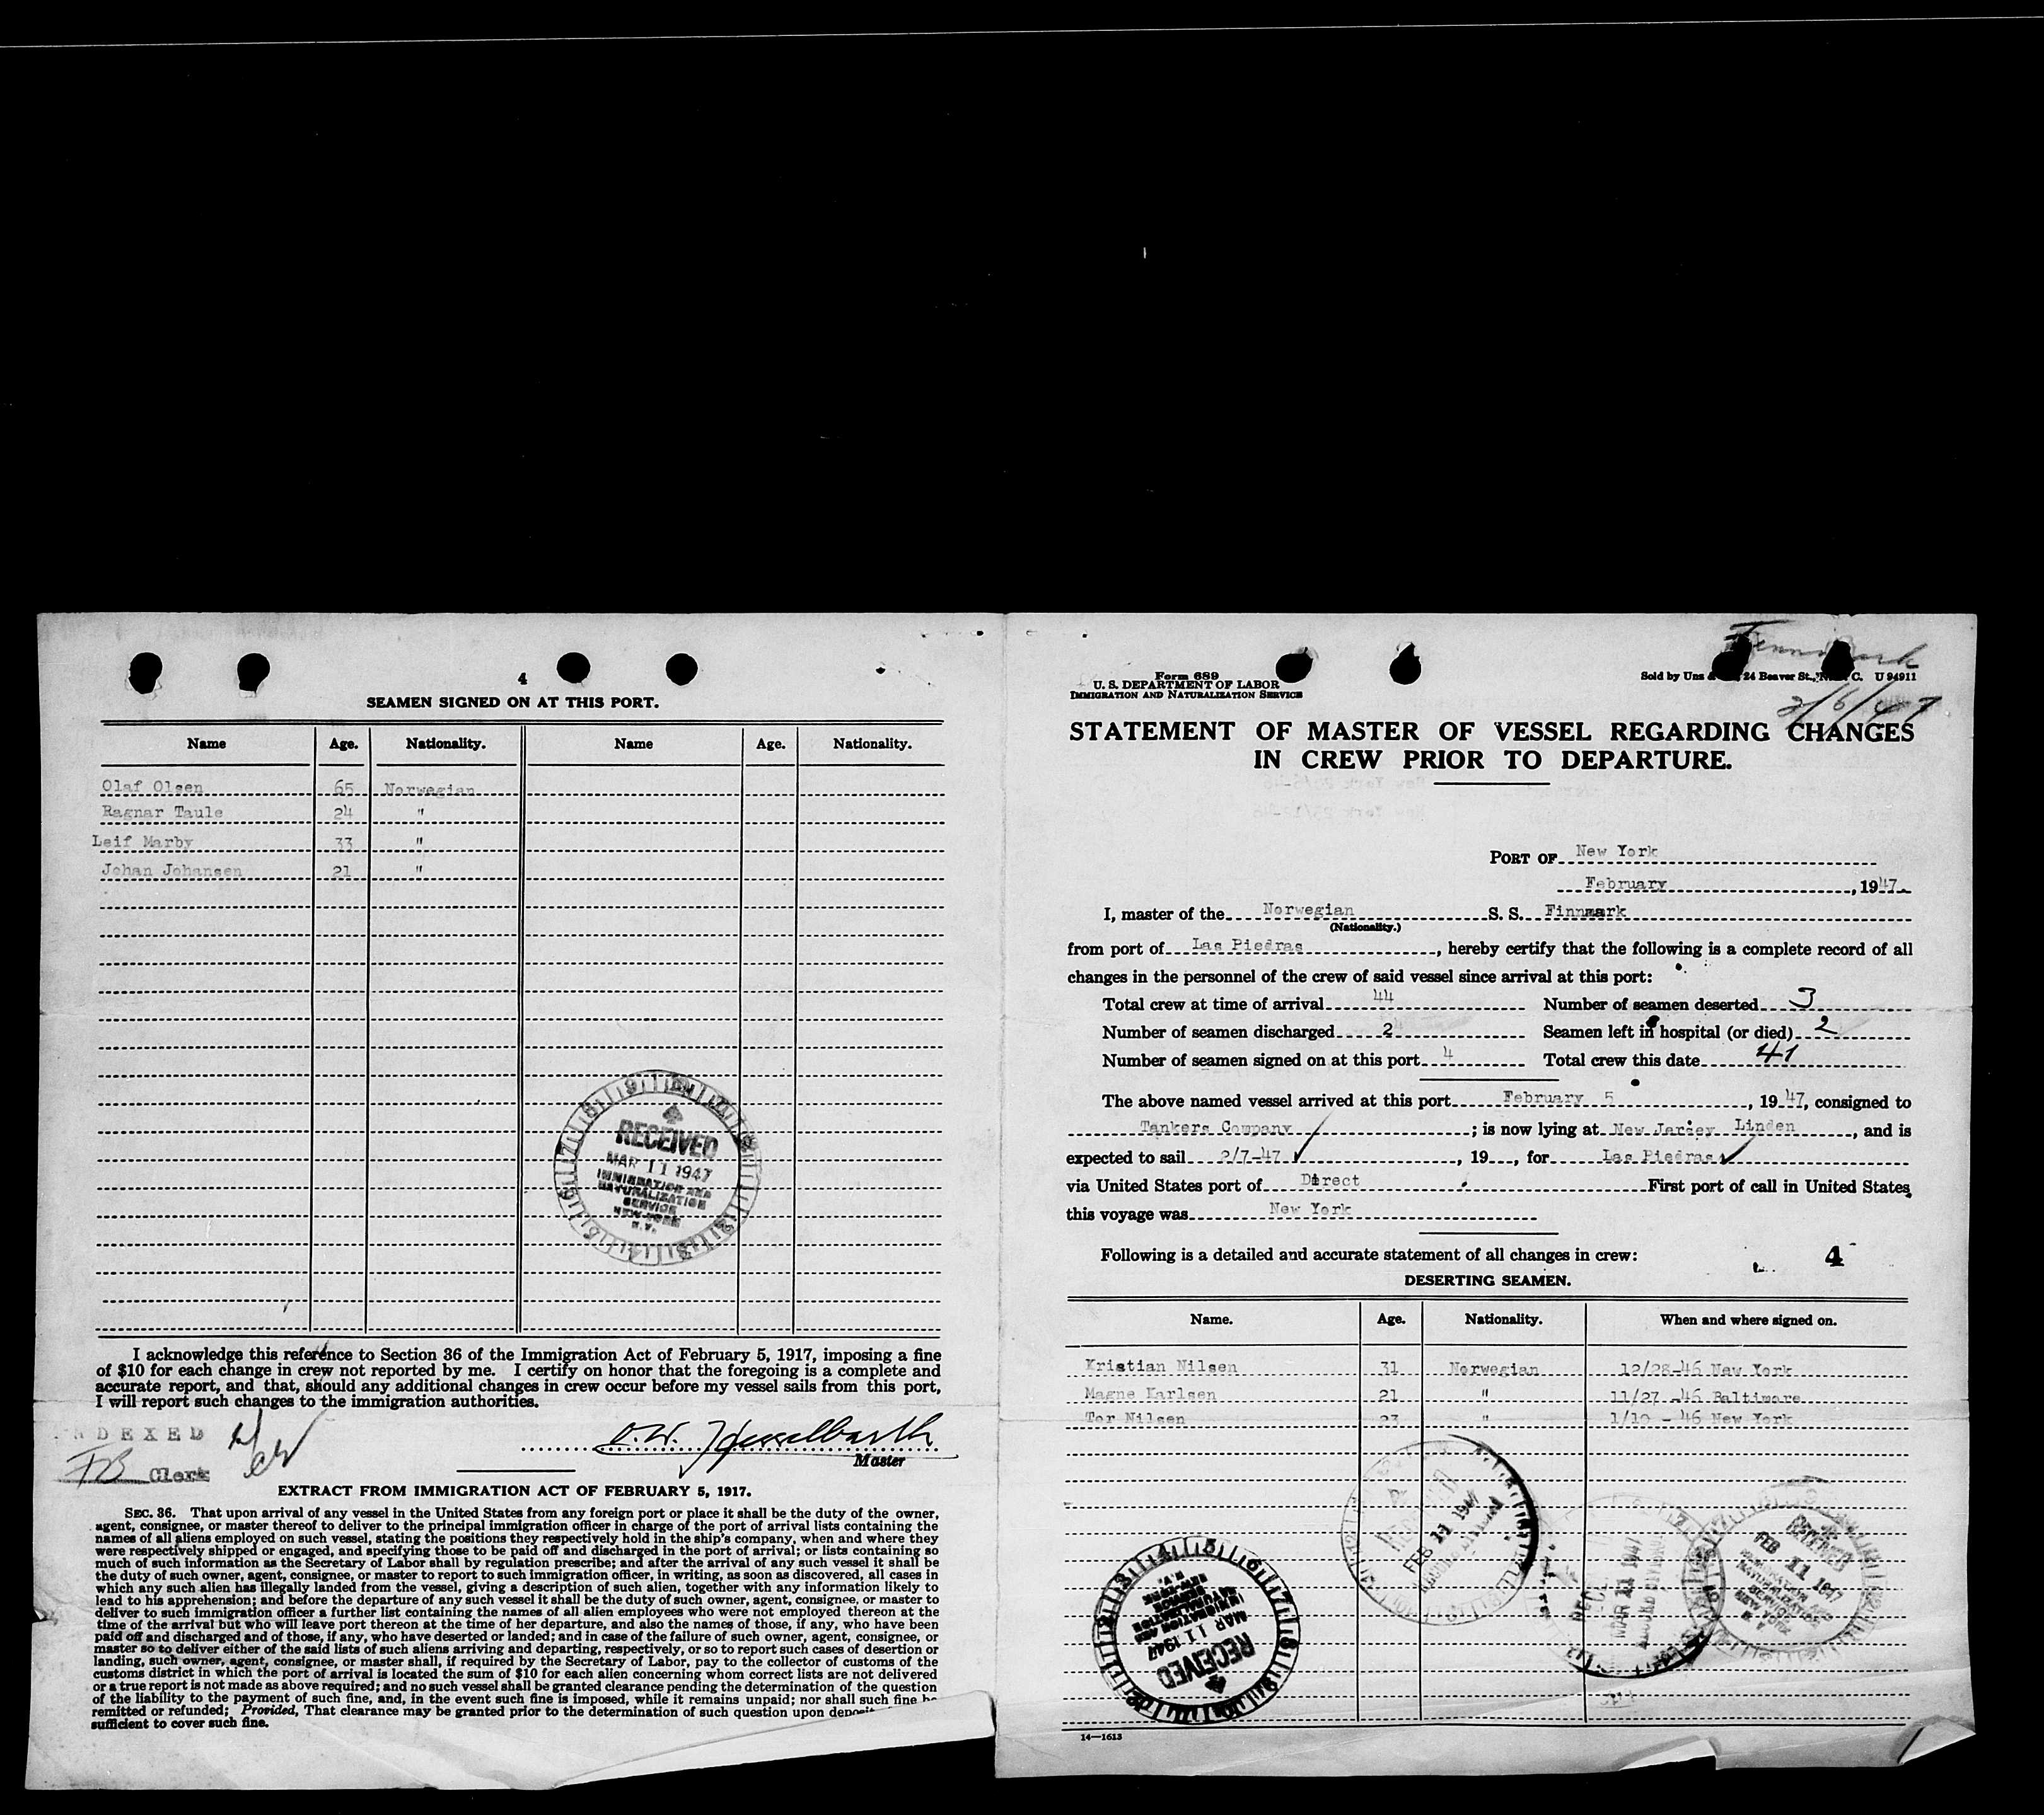 4
SEAMEN SIGNED ON AT THIS PORT.
Name Age. Nationality. Name Age. Nationality.
Olaf Olsen 65 Norwegian
Ragnar Taule 24 "
Leif Marby 33 "
Johan Johansen 21 "
RECEIVED
MAR 11 1947
IMMIGRATION AND
NATURALIZATION
SERVICE
NEW YORK
N.Y.
I acknowledge this reference to Section 36 of the Immigration Act of February 5, 1917, imposing a fine
of $10 for each change in crew not reported by me. I certify on honor that the foregoing is a complete and
accurate report, and that, should any additional changes in crew occur before my vessel sails from this port,
I will report such changes to the immigration authorities.
INDEXED
FB Clerk
O.W. Hesselbarth
Master
EXTRACT FROM IMMIGRATION ACT OF FEBRUARY 5, 1917.
SEC. 36. That upon arrival of any vessel in the United States from any foreign port or place it shall be the duty of the owner,
agent, consignee, or master thereof to deliver to the principal immigration officer in charge of the port of arrival lists containing the
names of all aliens employed on such vessel, stating the positions they respectively hold in the ship's company, when and where they
were respectively shipped or engaged, and specifying those to be paid off and discharged in the port of arrival; or lists containing so
much of such information as the Secretary of Labor shall by regulation prescribe; and after the arrival of any such vessel it shall be
the duty of such owner, agent, consignee, or master to report to such immigration officer, in writing, as soon as discovered, all cases in
which any such alien has illegally landed from the vessel, giving a description of such alien, together with any information likely to
lead to his apprehension; and before the departure of any such vessel it shall be the duty of such owner, agent, consignee, or master to
deliver to such immigration officer a further list containing the names of all alien employees who were not employed thereon at the
time of the arrival but who will leave port thereon at the time of her departure, and also the names of those, if any, who have been
paid off and discharged and of those, if any, who have deserted or landed; and in case of the failure of such owner, agent, consignee, or
master so to deliver either of the said lists of such aliens arriving and departing, respectively, or so to report such cases of desertion or
landing, such owner, agent, consignee, or master shall, if required by the Secretary of Labor, pay to the collector of customs of the
customs district in which the port of arrival is located the sum of $10 for each alien concerning whom correct lists are not delivered
or a true report is not made as above required; and no such vessel shall be granted clearance pending the determination of the question
of the liability to the payment of such fine, and, in the event such fine is imposed, while it remains unpaid; nor shall such fine be
remitted or refunded; Provided, That clearance may be granted prior to the determination of such question upon deposit
sufficient to cover such fine.
Form 689
U. S. DEPARTMENT OF LABOR
IMMIGRATION AND NATURALIZATION SERVICE
Sold by Unz & 24 Beaver St., N. Y. C. U 94911
2/6/47
STATEMENT OF MASTER OF VESSEL REGARDING CHANGES
IN CREW PRIOR TO DEPARTURE.
PORT OF New York
February, 1947
I, master of the Norwegian S. S. Finnmark
(Nationality.)
from port of Las Piedras, hereby certify that the following is a complete record of all
changes in the personnel of the crew of said vessel since arrival at this port:
Total crew at time of arrival 44 Number of seamen deserted 3
Number of seamen discharged 2 Seamen left in hospital (or died) 2
Number of seamen signed on at this port 4 Total crew this date 41
The above named vessel arrived at this port February 5, 1947, consigned to
Tankers Company; is now lying at New Jersey Linden, and is
expected to sail 2/7-47, 19__, for Las Piedras
via United States port of Direct First port of call in United States
this voyage was New York
Following is a detailed and accurate statement of all changes in crew: 4
DESERTING SEAMEN.
Name. Age. Nationality. When and where signed on.
Kristian Nilsen 31 Norwegian 12/28-46 New York
Magne Karlsen 21 " 11/27 -46 Baltimore
Tor Nilsen 23 " 1/10 - 46 New York
FEB 11 1947
MAR 11 1947
RECORD DIVISION
RECEIVED
FEB 11 1947
IMMIGRATION AND
NATURALIZATION
SERVICE
NEW YORK
N.Y.
RECEIVED
MAR 11 1947
IMMIGRATION AND
NATURALIZATION
SERVICE
NEW YORK
N.Y.
14—1613